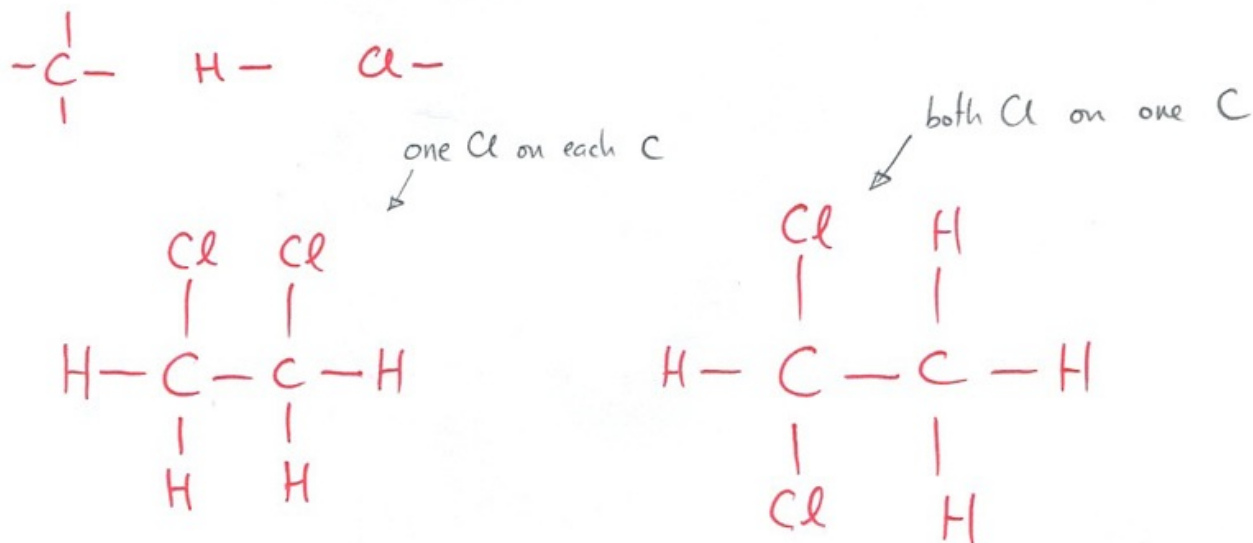 -C- H- Cl-
one Cl on each C
both Cl on one C
Cl Cl
H-C-C-H
H H
Cl H
H-C-C-H
Cl H